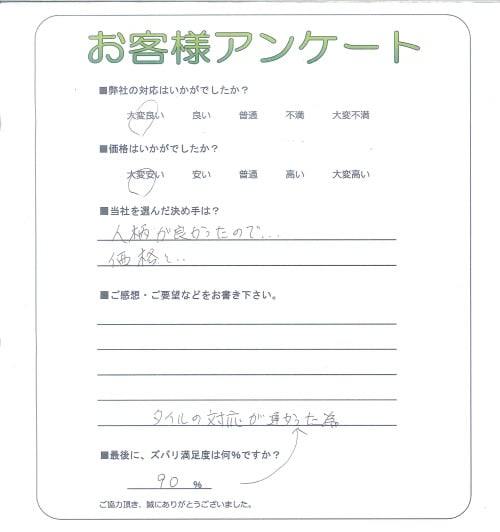 お客様アンケート
■弊社の対応はいかがでしたか？
大変良い 良い 普通 不満 大変不満
■価格はいかがでしたか？
大変安い 安い 普通 高い 大変高い
■当社を選んだ決め手は？
人柄が良かったので...
価格と..
■ご感想・ご要望などをお書き下さい。
タイルの対応が遅かった為
■最後に、ズバリ満足度は何%ですか？
90 %
ご協力頂き、誠にありがとうございました。